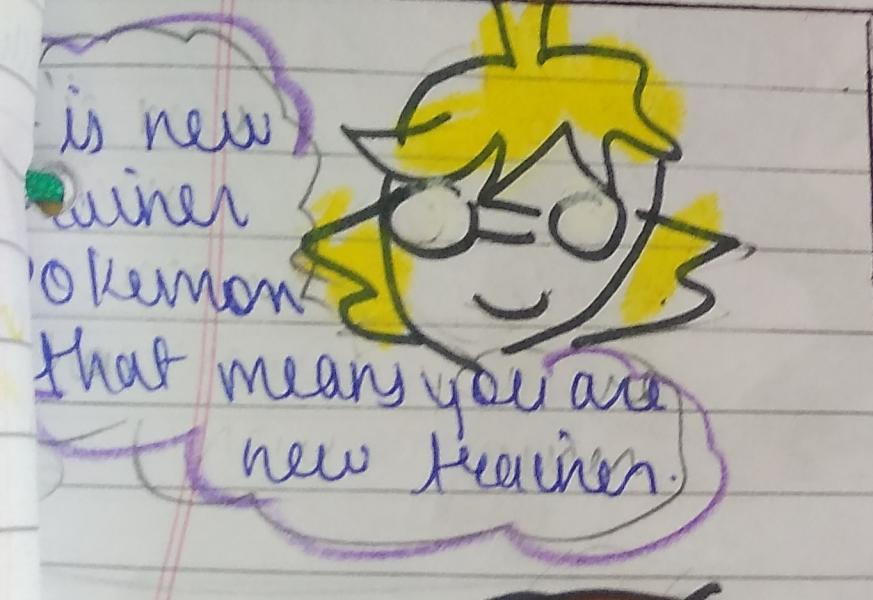 is new
okemon
that means you are
new trainer.